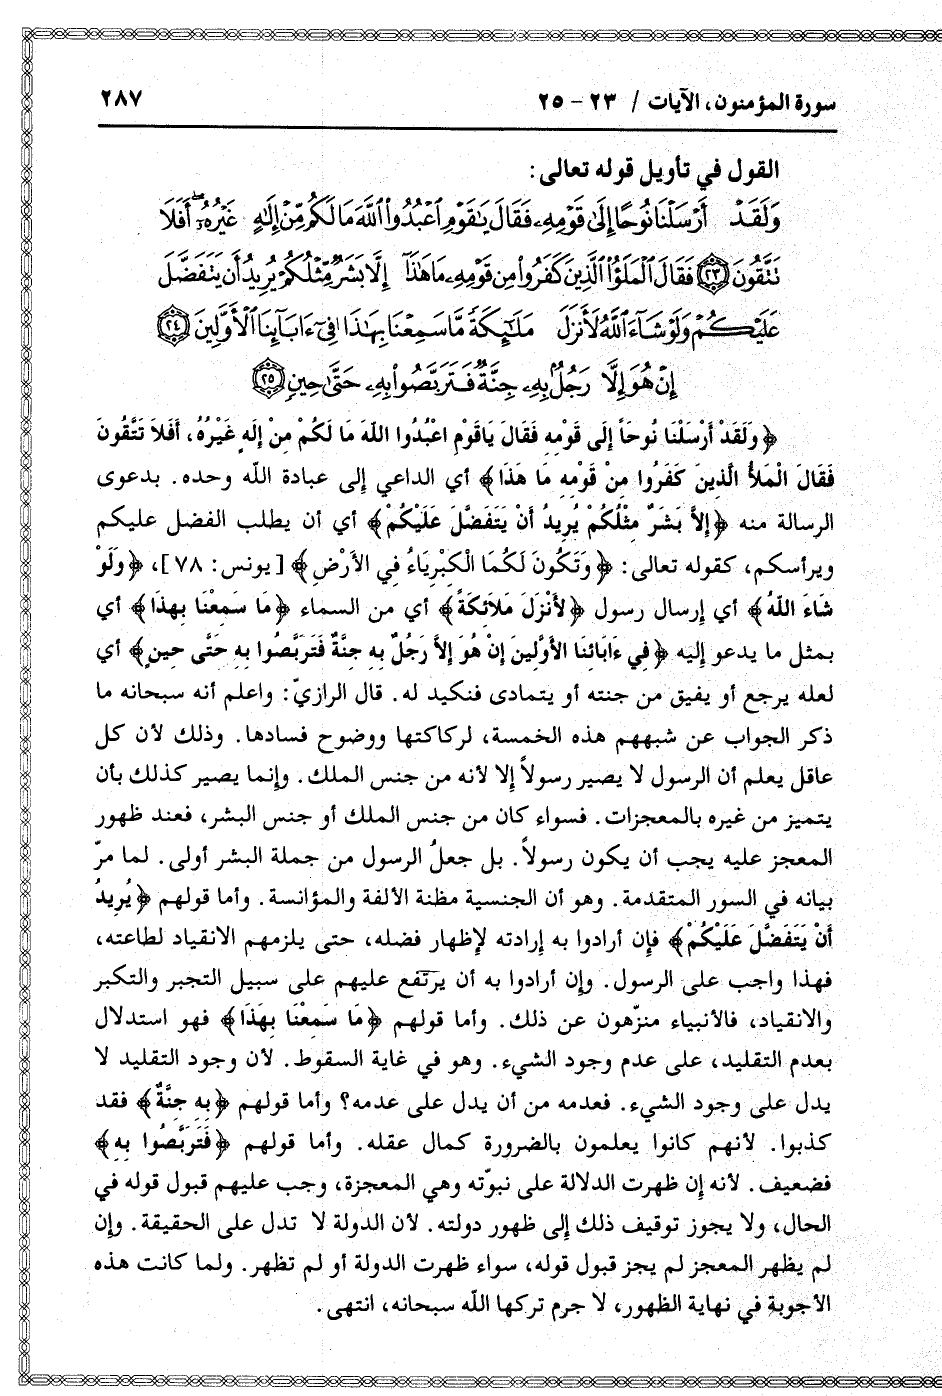 سورة المؤمنون، الآيات / ٢٣ - ٢٥ ٢٨٧
القول في تأويل قوله تعالى:
وَلَقَدْ أَرْسَلْنَا نُوحًا إِلَىٰ قَوْمِهِۦ فَقَالَ يَٰقَوْمِ ٱعْبُدُوا۟ ٱللَّهَ مَا لَكُم مِّنْ إِلَٰهٍ غَيْرُهُۥٓ ۖ أَفَلَا
تَتَّقُونَ ٢٣ فَقَالَ ٱلْمَلَؤُا۟ ٱلَّذِينَ كَفَرُوا۟ مِن قَوْمِهِۦ مَا هَٰذَآ إِلَّا بَشَرٌ مِّثْلُكُمْ يُرِيدُ أَن يَتَفَضَّلَ
عَلَيْكُمْ وَلَوْ شَآءَ ٱللَّهُ لَأَنزَلَ مَلَٰٓئِكَةً مَّا سَمِعْنَا بِهَٰذَا فِىٓ ءَابَآئِنَا ٱلْأَوَّلِينَ ٢٤
إِنْ هُوَ إِلَّا رَجُلٌۢ بِهِۦ جِنَّةٌ فَتَرَبَّصُوا۟ بِهِۦ حَتَّىٰ حِينٍ ٢٥
﴿وَلَقَدْ أَرْسَلْنَا نُوحَاً إِلَى قَوْمِهِ فَقَالَ يَاقَوْمِ اعْبُدُوا اللهَ مَا لَكُمْ مِنْ إِلَهٍ غَيْرُهُ، أَفَلاَ تَتَّقُونَ
فَقَالَ الْمَلأُ الَّذِينَ كَفَرُوا مِنْ قَوْمِهِ مَا هَذَا﴾ أي الداعي إلى عبادة الله وحده. بدعوى
الرسالة منه ﴿إِلاَّ بَشَرٌ مِثْلُكُمْ يُرِيدُ أَنْ يَتَفَضَّلَ عَلَيْكُمْ﴾ أي أن يطلب الفضل عليكم
ويرأسكم، كقوله تعالى: ﴿وَتَكُونَ لَكُمَا الْكِبْرِيَاءُ فِي الأَرْضِ﴾ [يونس: ٧٨]، ﴿وَلَوْ
شَاءَ اللهُ﴾ أي إرسال رسول ﴿لأَنْزَلَ مَلاَئكَةً﴾ أي من السماء ﴿مَا سَمِعْنَا بِهذَا﴾ أي
بمثل ما يدعو إليه ﴿فِي ءَابَائنَا الأَوَّلِينَ إِنْ هُوَ إِلاَّ رَجُلٌ بِهِ جِنَّةٌ فَتَرَبَّصُوا بِهِ حَتَّى حِينٍ﴾ أي
لعله يرجع أو يفيق من جنته أو يتمادى فنكيد له. قال الرازيّ: واعلم أنه سبحانه ما
ذكر الجواب عن شبههم هذه الخمسة، لركاكتها ووضوح فسادها. وذلك لأن كل
عاقل يعلم أن الرسول لا يصير رسولاً إلا لأنه من جنس الملك. وإنما يصير كذلك بأن
يتميز من غيره بالمعجزات. فسواء كان من جنس الملك أو جنس البشر، فعند ظهور
المعجز عليه يجب أن يكون رسولاً. بل جعلُ الرسول من جملة البشر أولى. لما مرّ
بيانه في السور المتقدمة. وهو أن الجنسية مظنة الألفة والمؤانسة. وأما قولهم ﴿يُرِيدُ
أَنْ يَتَفَضَّلَ عَلَيْكُمْ﴾ فإن أرادوا به إرادته لإظهار فضله، حتى يلزمهم الانقياد لطاعته،
فهذا واجب على الرسول. وإن أرادوا به أن يرتفع عليهم على سبيل التجبر والتكبر
والانقياد، فالأنبياء منزّهون عن ذلك. وأما قولهم ﴿مَا سَمِعْنَا بِهَذَا﴾ فهو استدلال
بعدم التقليد، على عدم وجود الشيء. وهو في غاية السقوط. لأن وجود التقليد لا
يدل على وجود الشيء. فعدمه من أن يدل على عدمه؟ وأما قولهم ﴿بِهِ جِنَّةٌ﴾ فقد
كذبوا. لأنهم كانوا يعلمون بالضرورة كمال عقله. وأما قولهم ﴿فَتَرَبَّصُوا بِهِ﴾
فضعيف. لأنه إن ظهرت الدلالة على نبوّته وهي المعجزة، وجب عليهم قبول قوله في
الحال، ولا يجوز توقيف ذلك إلى ظهور دولته. لأن الدولة لا تدل على الحقيقة. وإن
لم يظهر المعجز لم يجز قبول قوله، سواء ظهرت الدولة أو لم تظهر. ولما كانت هذه
الأجوبة في نهاية الظهور، لا جرم تركها الله سبحانه، انتهى.